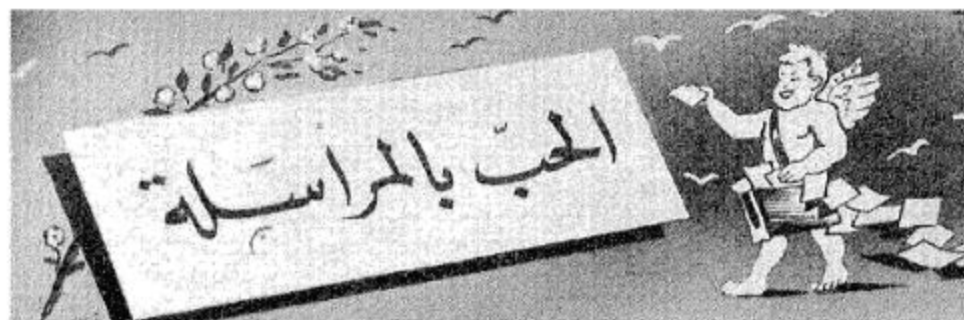 الحبّ بالمراسَلة